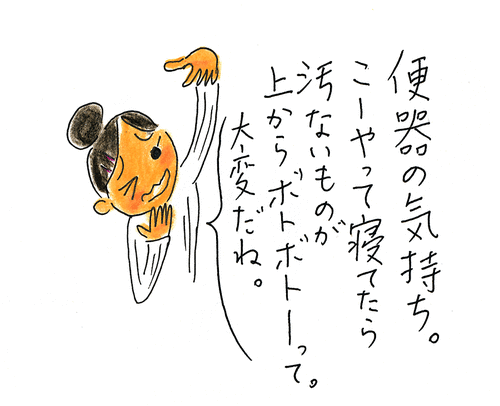 便器の気持ち。
こーやって寝てたら
汚ないものが
上からボトボトーって。
大変だね。